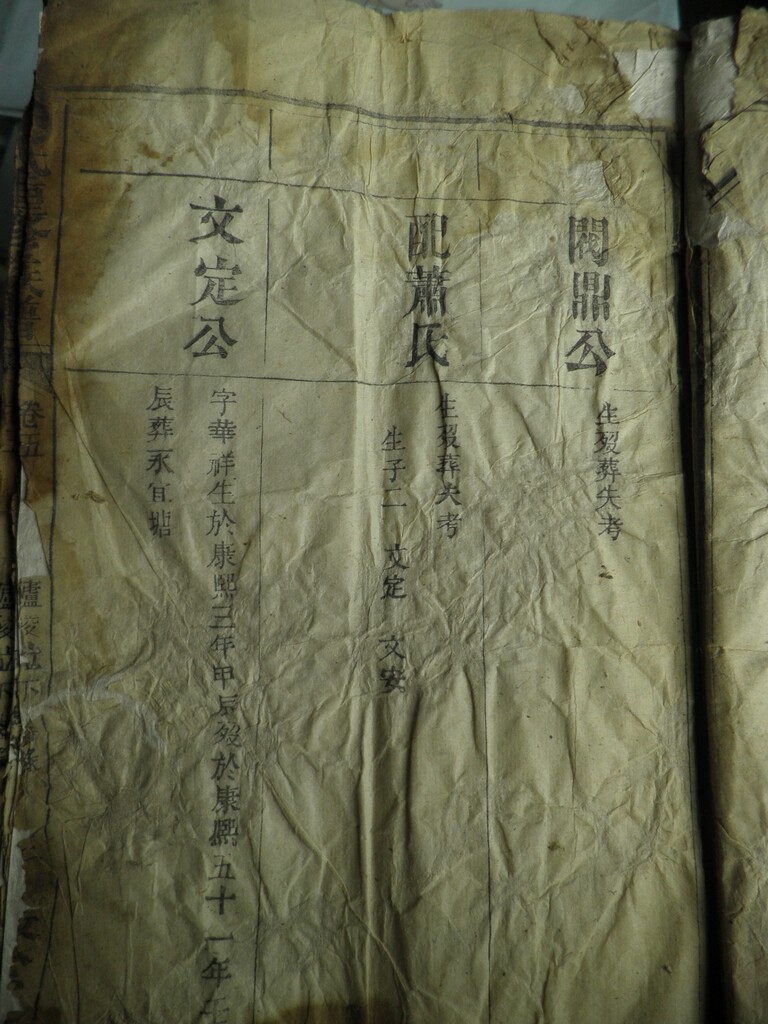 閥鼎公
生歿葬失考
配蕭氏
生歿葬失考
生子二 文定 文安
文定公
字華祥生於康熙三年甲辰歿於康熙五十一年壬
辰葬永宜塘
卷五